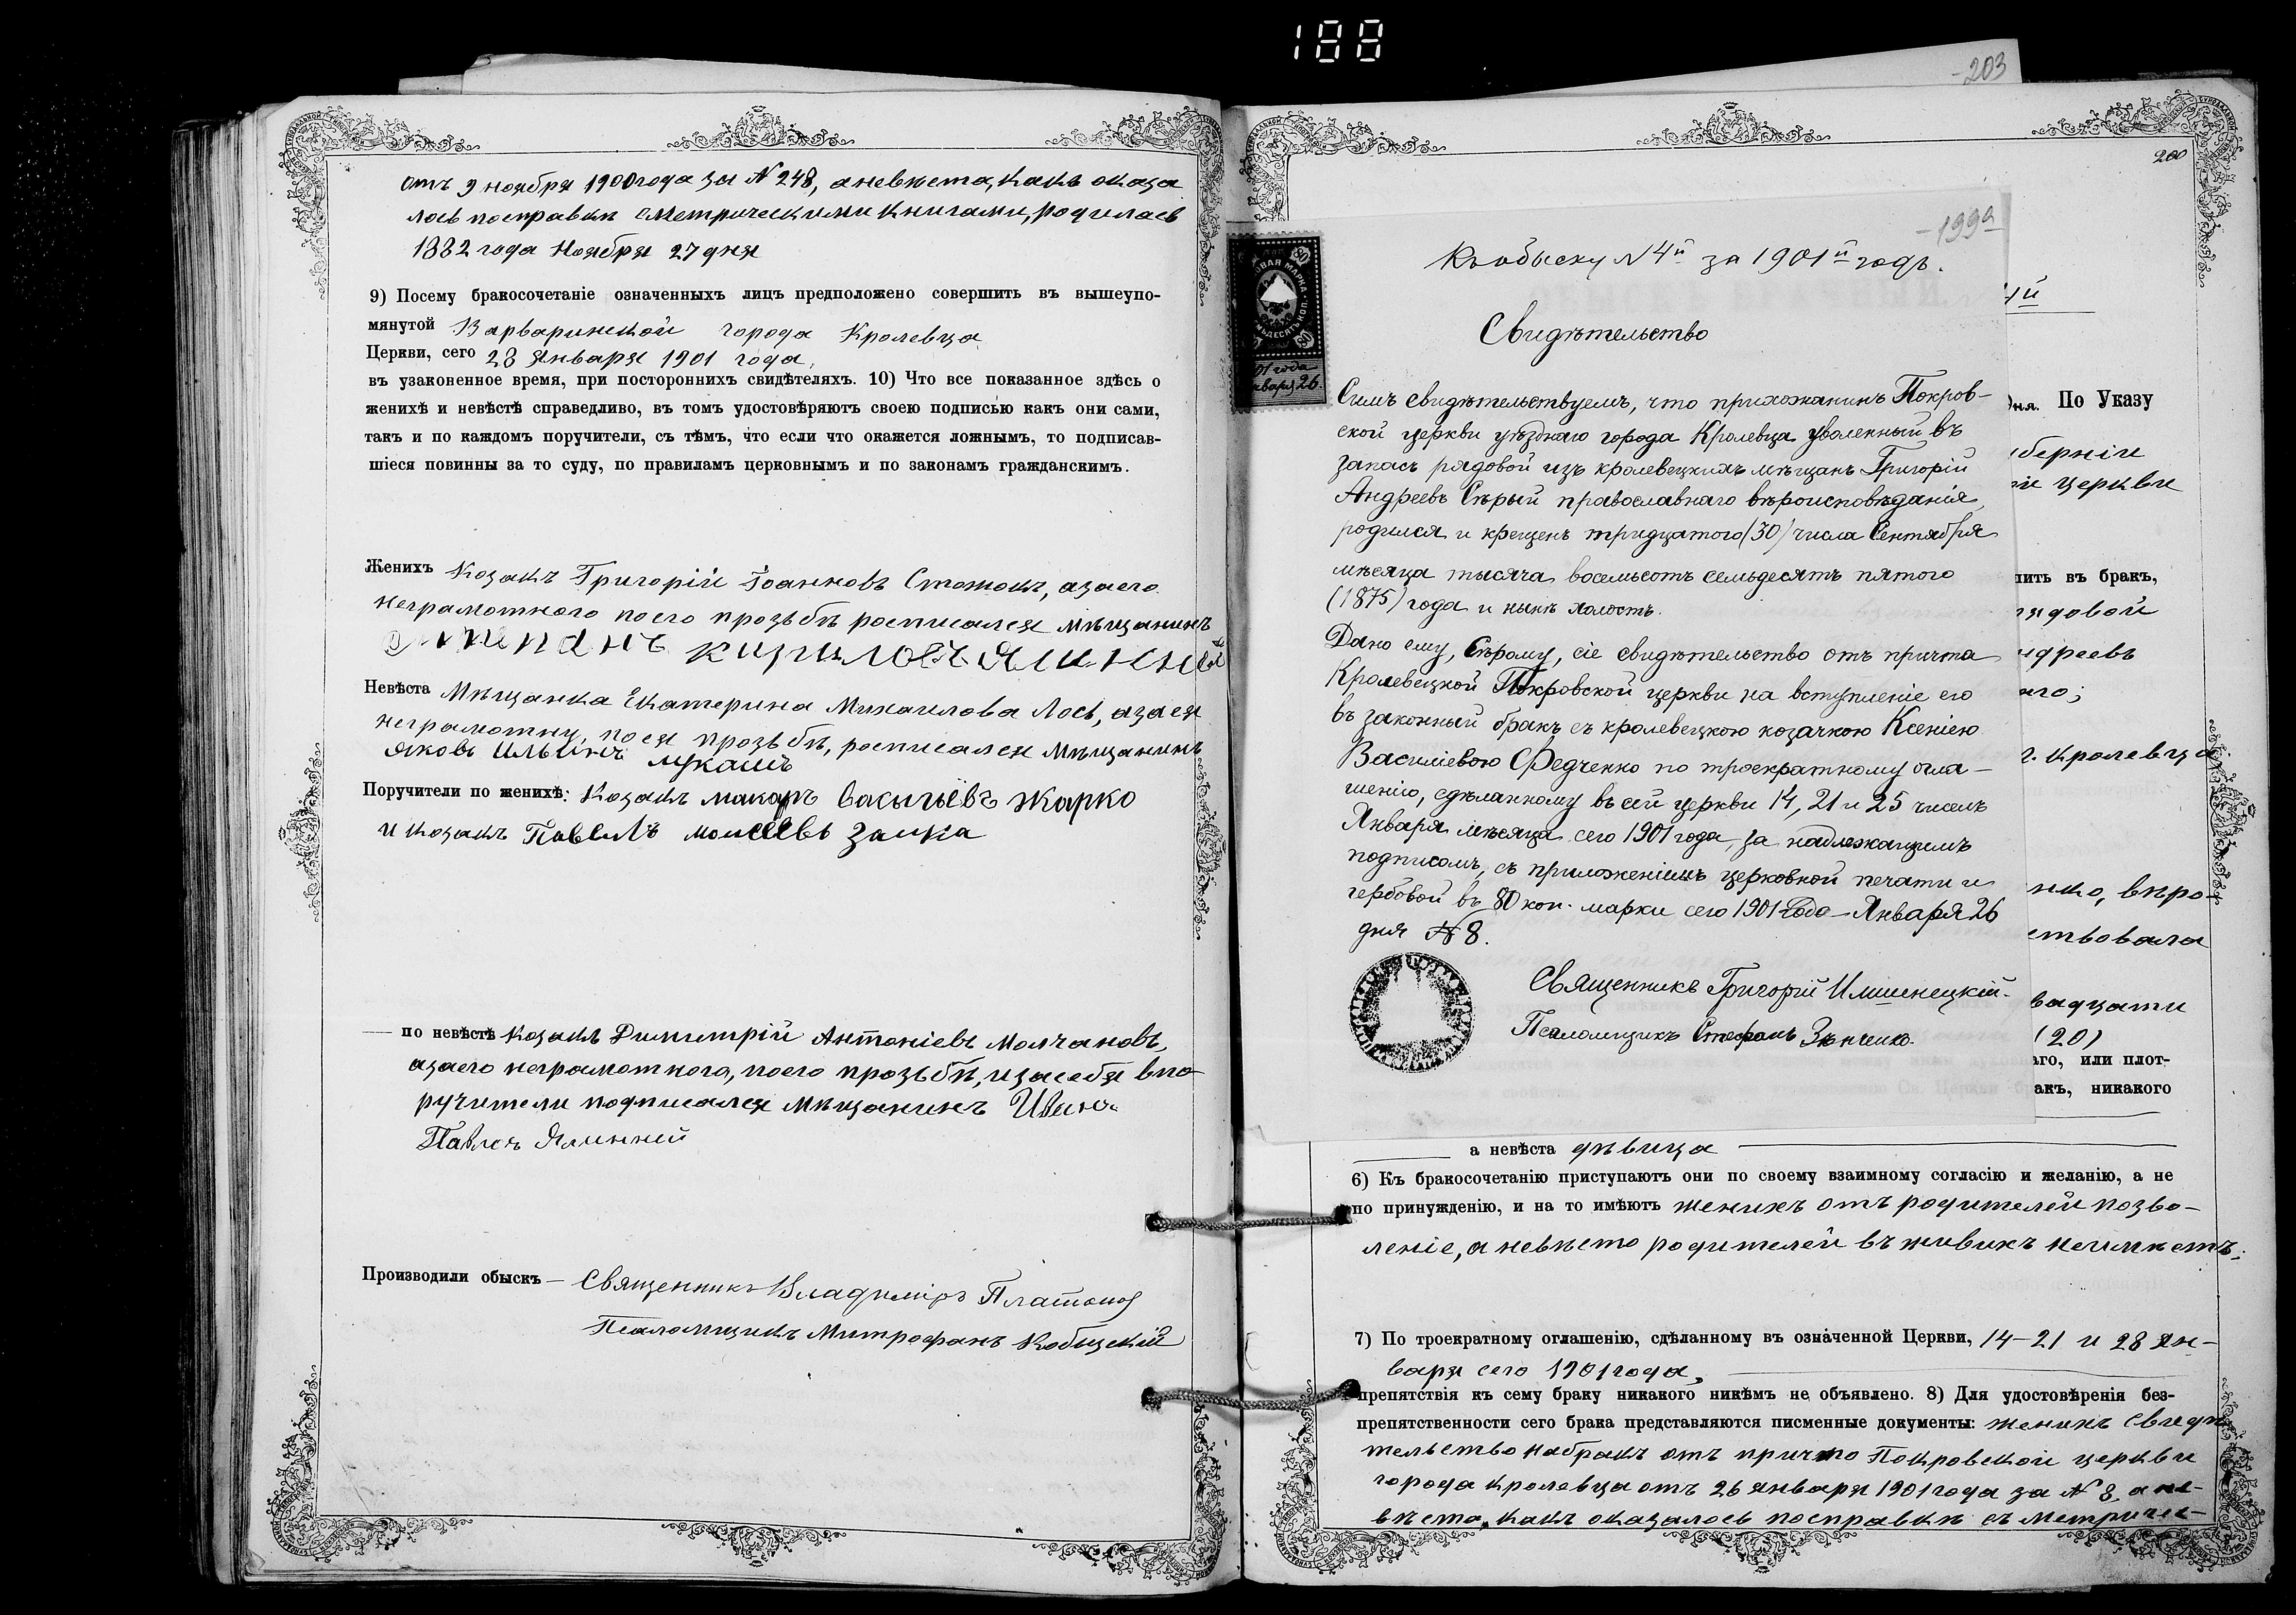 188
-203
отъ 9 ноября 1900 года за № 248, а невѣста, какъ оказа
лось по справкѣ съ метрическими книгами, родилась
1882 года Ноября 27 дня
9) Посему бракосочетаніе означенныхъ лицъ предположено совершить въ вышеупо-
мянутой Варваринской города Кролевца
Церкви, сего 28 Января 1901 года,
въ узаконенное время, при постороннихъ свидѣтеляхъ. 10) Что все показанное здѣсь о
женихѣ и невѣстѣ справедливо, въ томъ удостовѣряютъ своею подписью какъ они сами,
такъ и по каждомъ поручители, съ тѣмъ, что если что окажется ложнымъ, то подписав-
шіеся повинны за то суду, по правиламъ церковнымъ и по законамъ гражданскимъ.
Женихъ Козакъ Григорій Іоанновъ Стожокъ, а за его
неграмотного по его прозьбѣ росписался мѣщанинъ
Степанъ Кириловъ Ялинный
Невѣста Мѣщанка Екатерина Михаилова Лось, а за ея
неграмотну, по ея прозьбѣ, росписался мѣщанинъ
Яковъ Ильинъ Лукашъ
Поручители по женихѣ: Козакъ Макаръ Васильевъ Жарко
и козакъ Павелъ Моисеевъ Заика
— по невѣстѣ Козакъ Димитрій Антоніевъ Молчановъ,
а за его неграмотного, по его прозьбѣ, и за себя в по-
ручители подписался мѣщанинъ Иванъ
Павловъ Ялинний
Производили обыскъ — Священникъ Владиміръ Платонов
Псаломщикъ Митрофанъ Кобыцкій
200
-199а
Къ обыску № 4й за 1901й годъ.
Свидѣтельство
Симъ свидѣтельствуемъ, что прихожанинъ Покров-
ской церкви уѣзднаго города Кролевца уволенный въ
запасъ рядовой изъ кролевецкихъ мѣщанъ Григорій
Андреевъ Сѣрый православнаго вѣроисповѣданія,
родился и крещенъ тридцатого (30) числа Сентября
мѣсяца тысяча восемьсотъ семьдесятъ пятого
(1875) года и нынѣ холостъ.
Дано ему, Сѣрому, сіе свидѣтельство отъ причта
Кролевецкой Покровской церкви на вступленіе его
въ законный бракъ съ кролевецкою козачкою Ксеніею
Василіевою Федченко по троекратному огла-
шенію, сдѣланному въ сей церкви 14, 21 и 25 чиселъ
Января мѣсяца сего 1901 года, за надлежащимъ
подписомъ, съ приложеніемъ церковной печати и
гербовой въ 80 коп. марки сего 1901 года — Января 26
дня № 8.
Священникъ Григорій Имшенецкій.
Псаломщикъ Стефанъ Зѣнченко.
80 80
МАРКА
01 года
нваря 26.
ый
дня. По Указу
уберніи
церкви
пить въ бракъ,
рядовой
ндреевъ
аго;
г. Кролевца
нко, вѣро-
ствовала
вадцати
(20)
аго, или плот-
акъ, никакого
а невѣста дѣвица
6) Къ бракосочетанію приступаютъ они по своему взаимному согласію и желанію, а не
по принужденію, и на то имѣютъ женихъ отъ родителей позво-
леніе, а невѣста родителей въ живихъ неимѣетъ.
7) По троекратному оглашенію, сдѣланному въ означенной Церкви, 14-21 и 28 Ян-
варя сего 1901 года,
препятствія къ сему браку никакого никѣмъ не объявлено. 8) Для удостовѣренія без-
препятственности сего брака представляются писменные документы: женихъ Свидѣ
тельство на бракъ отъ причто Покровской церкви
города Кролевца отъ 26 января 1901 года за № 8, а не-
вѣста, какъ оказалось по справкѣ съ метричес-